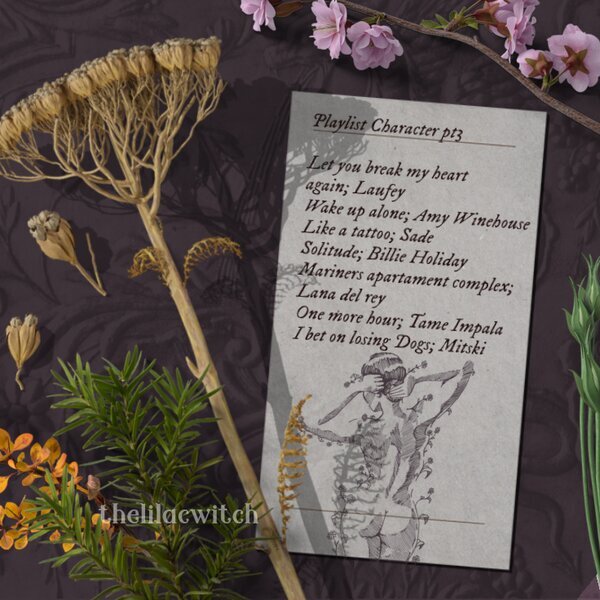 Playlist Character pt3
Let you break my heart
again; Laufey
Wake up alone; Amy Winehouse
Like a tattoo; Sade
Solitude; Billie Holiday
Mariners apartament complex;
Lana del rey
One more hour; Tame Impala
I bet on losing Dogs; Mitski
thelilacwitch